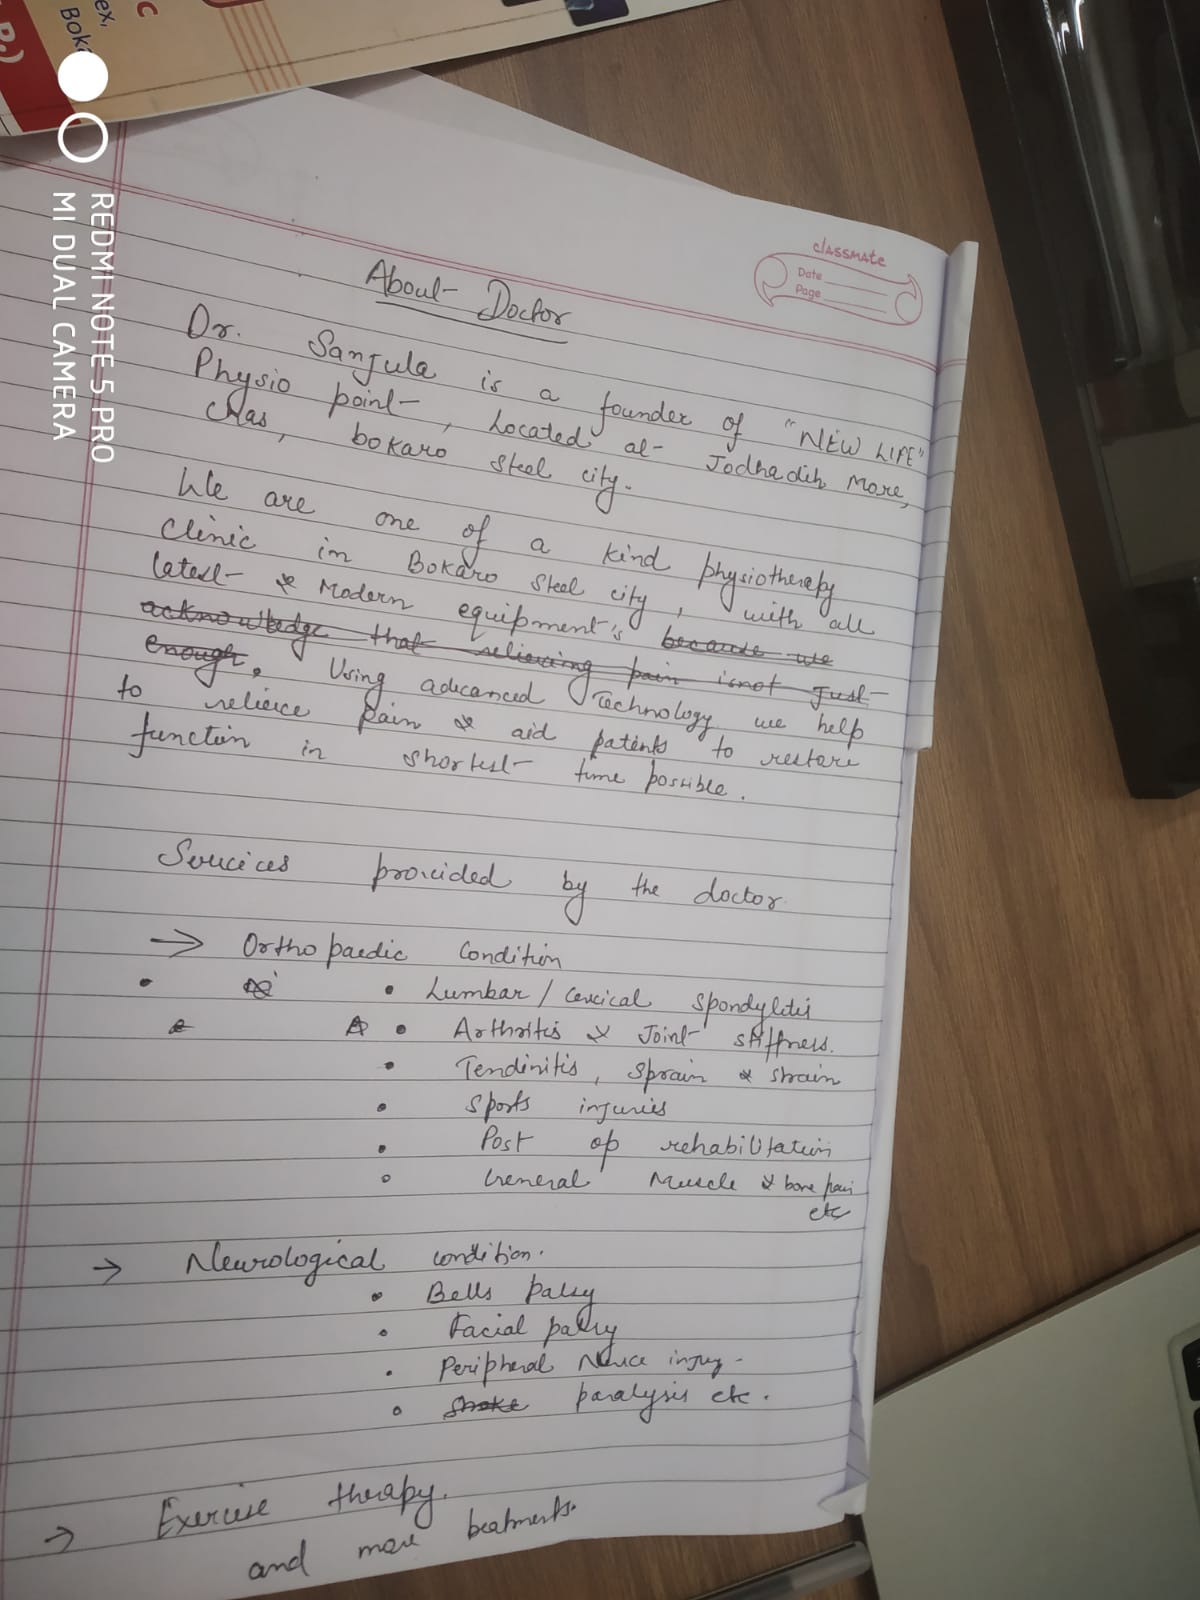 C
ex,
Bok
P.)
REDMI NOTE 5 PRO
MI DUAL CAMERA
classmate
Date
Page
About Doctor
Dr. Sanjula is a founder of "NEW LIFE"
Physio point, Located at Jodhadih More,
chas, bokaro steel city.
We are one of a kind physiotherapy
clinic in Bokaro steel city, with all
latest & Modern equipment's because we
acknowledge that relieving pain is not just
enough. Using advanced Technology we help
to relieve pain & aid patents to restore
function in shortest time possible.
Services provided by the doctor
→ Orthopaedic Condition
• Lumbar / Cervical spondylitis
• Arthritis & Joint stiffness.
• Tendinitis, Sprain & strain
• Sports injuries
• Post op rehabilitation
• General Muscle & bone pain
etc
→ Neurological condition.
• Bells palsy
• Facial palsy
• Peripheral Nerve injury
• Stroke paralysis etc.
→ Exercise therapy.
and more treatments.